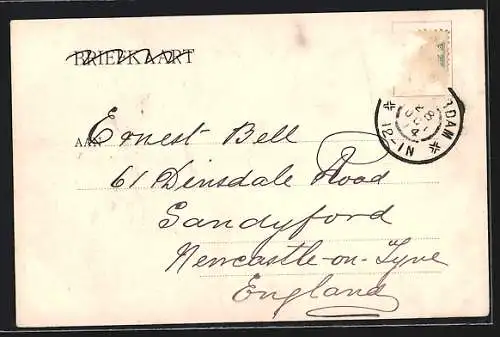 BRIEFKAART
AAN Ernest Bell
61 Dinsdale Road
Sandyford
Newcastle-on-Tyne
England
RDAM
12-1N